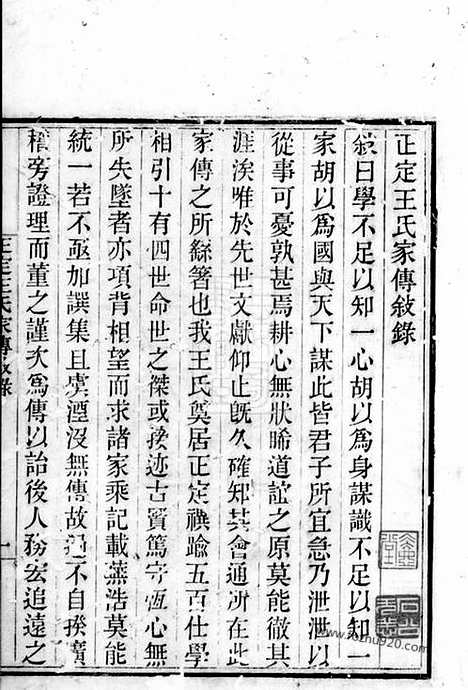 正定王氏家傳敘錄
敘曰學不足以知一心胡以爲身謀識不足以知一
家胡以爲國與天下謀此皆君子所宜急乃泄泄以
從事可憂孰甚焉耕心無狀晞道誼之原莫能徹其
涯涘唯於先世文獻仰止旣久確知其會通所在此
家傳之所繇箸也我王氏奠居正定禩踰五百仕學
相引十有四世命世之傑或揆迹古賢篤守恆心無
所失墜者亦項背相望而求諸家乘記載蕪浩莫能
統一若不亟加譔集且虞湮沒無傳故不自揆廣
稽旁證理而董之謹次爲傳以詒後人務宏追遠之
正定王氏家傳敘錄
一
www.fozhu920.com